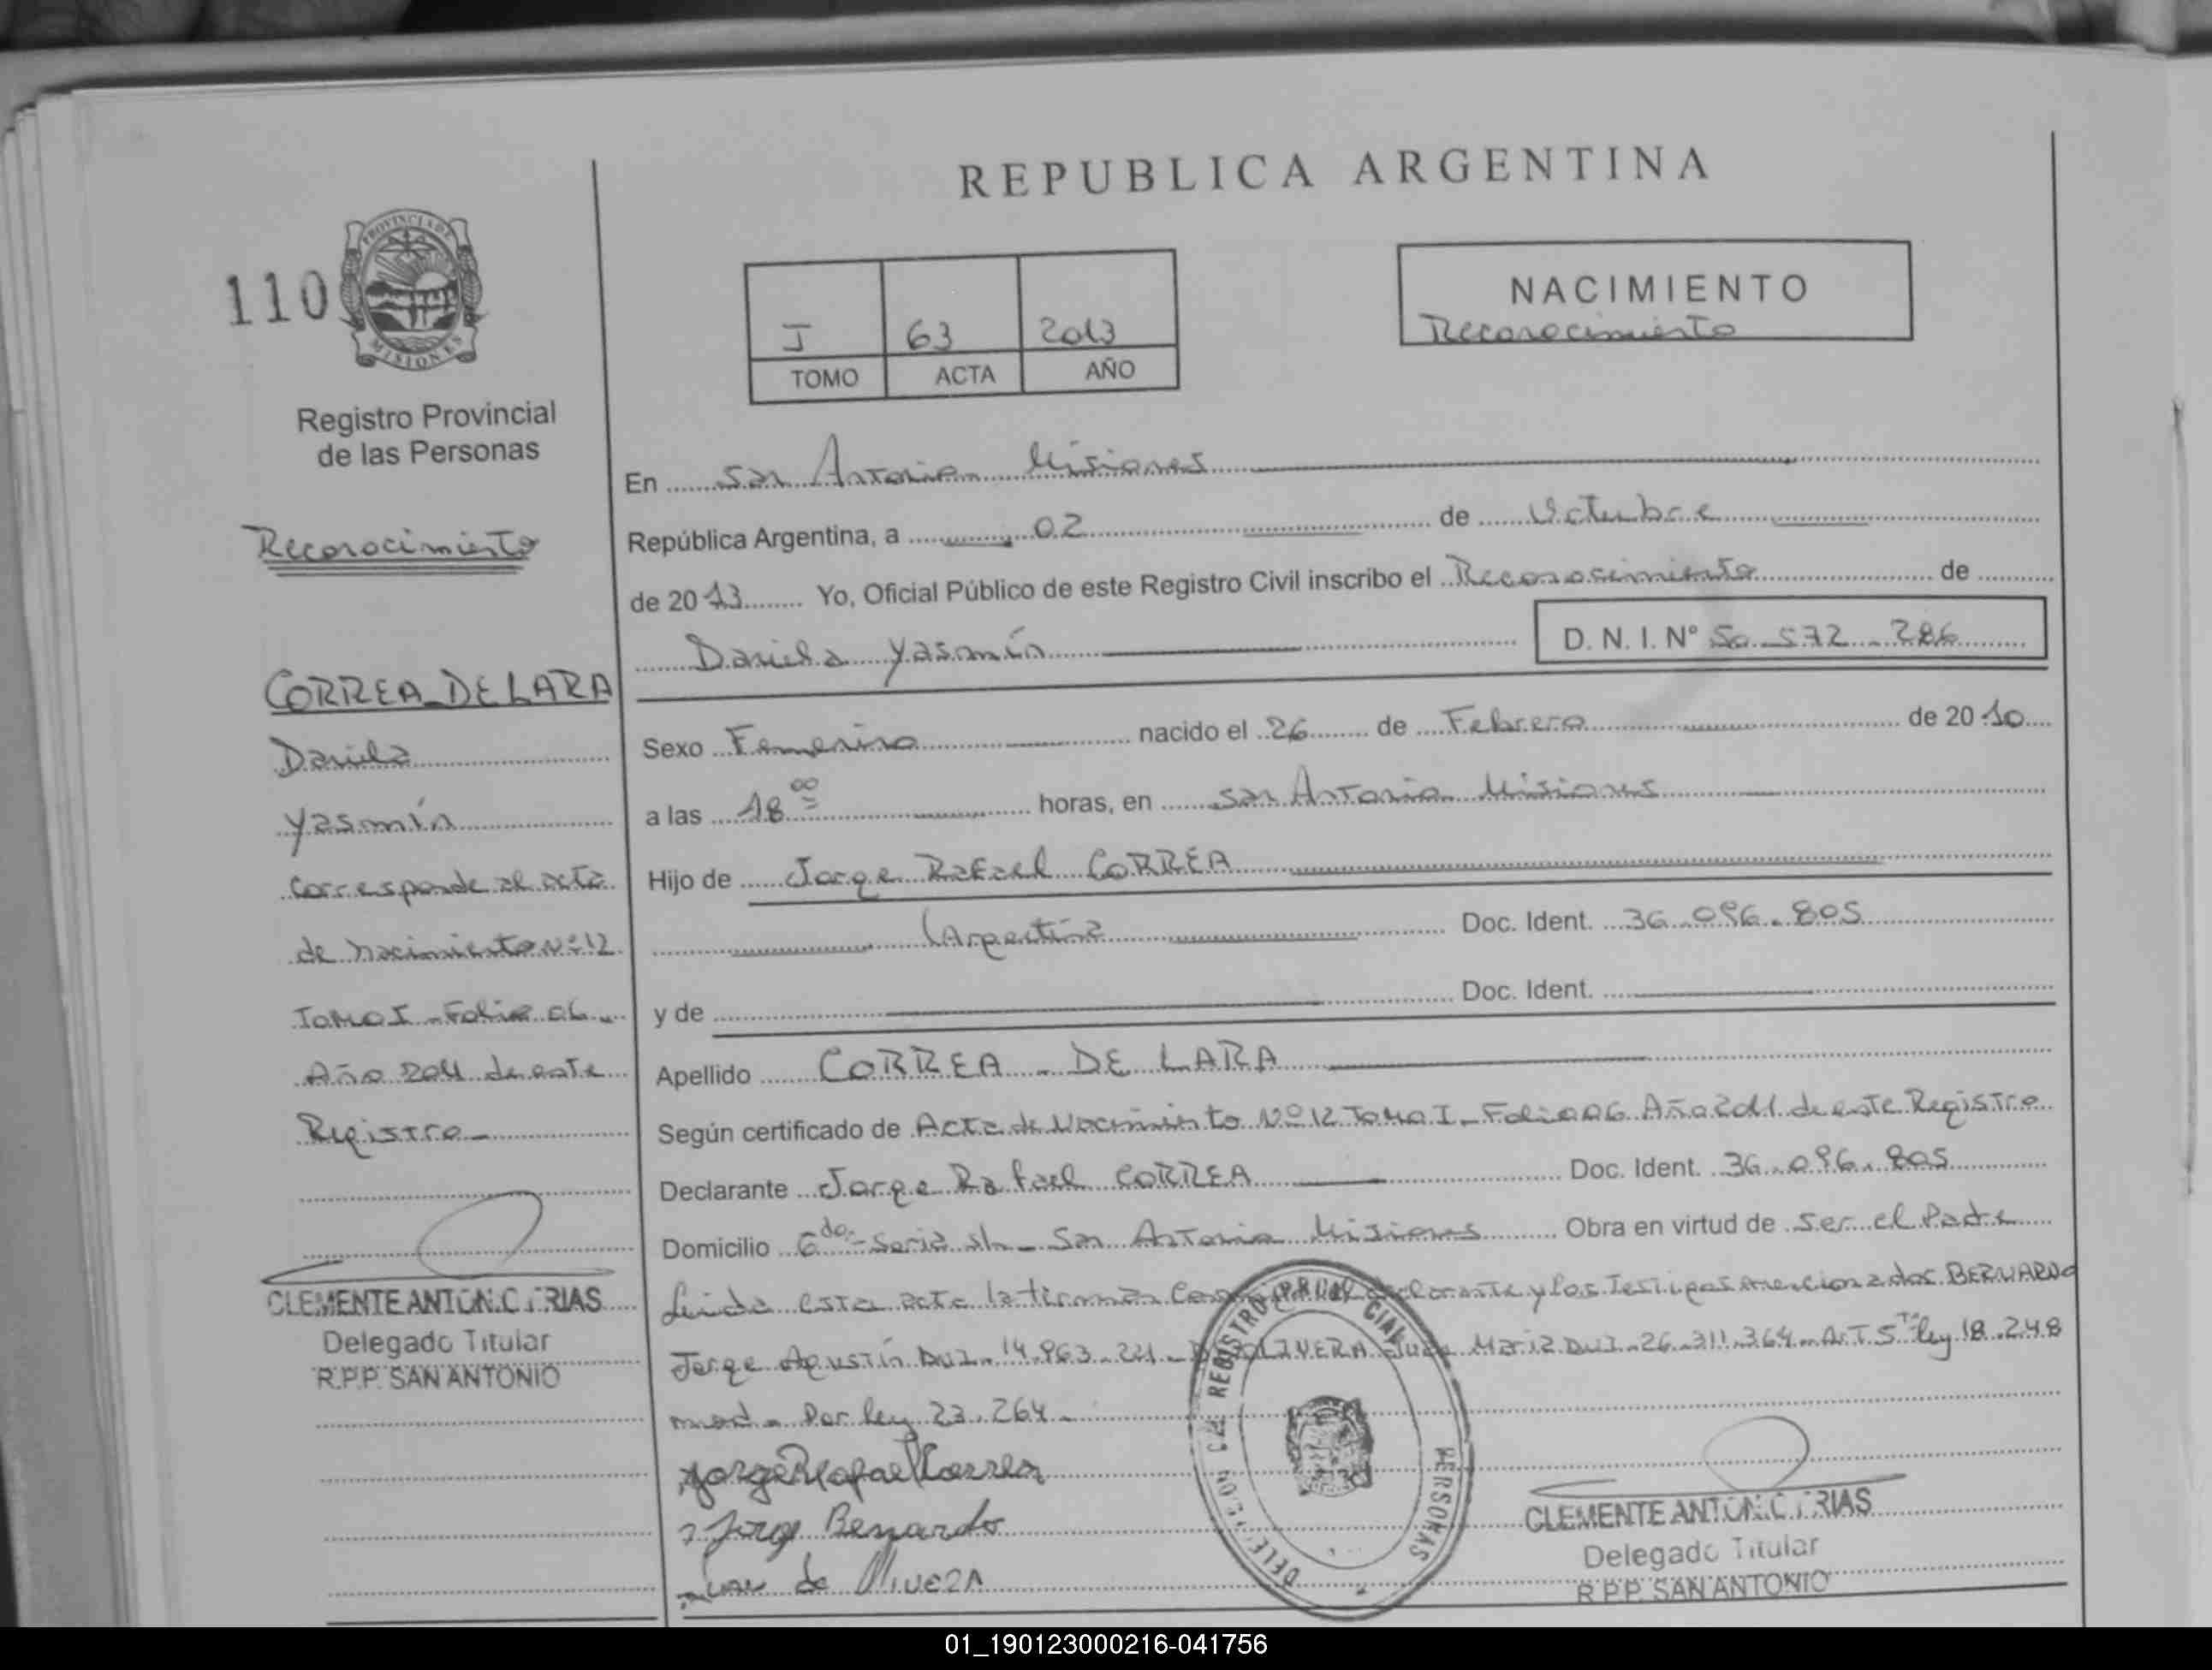 REPUBLICA ARGENTINA
110
PROVINCIA DE MISIONES
Registro Provincial
de las Personas
Reconocimiento
CORREA DE LARA
Daniela
Yasmín
Corresponde al acta
de nacimiento Nº 12
Tomo I - Folio 06 -
Año 2011 de este
Registro -
CLEMENTE ANTONIO
Delegado Titular
R.P.P. SAN ANTONIO
I 63 2013
TOMO ACTA AÑO
NACIMIENTO
Reconocimiento
En San Antonio Misiones
República Argentina, a 02 de Octubre
de 2013 Yo, Oficial Público de este Registro Civil inscribo el Reconocimiento de
Daniela Yasmín D. N. I. Nº 50.572.286
Sexo Femenino nacido el 26 de Febrero de 2010
a las 18 00 horas, en San Antonio Misiones
Hijo de Jorge Rafael CORREA
(Argentina Doc. Ident. 36.096.805
y de Doc. Ident.
Apellido CORREA - DE LARA
Según certificado de Acta de Nacimiento Nº 12 Tomo I - Folio 06 Año 2011 de este Registro
Declarante Jorge Rafael CORREA Doc. Ident. 36.096.805
Domicilio San Antonio Misiones Obra en virtud de ser el Padre
Leida esta acta la firman el declarante y los Testigos mencionados BERNARDO
Jorge Agustín DNI. 14.963.221 - DE OLIVERA Juan Maria DNI. 26.311.364 - Art. 5 ley 18.248
mod. Por ley 23.264 -
Jorge Rafael Correa
Jorge Bernardo
Juan de OLIVERA
REGISTRO PROVINCIAL DE LAS PERSONAS
CLEMENTE ANTONIO
Delegado Titular
R.P.P. SAN ANTONIO
01_190123000216-041756